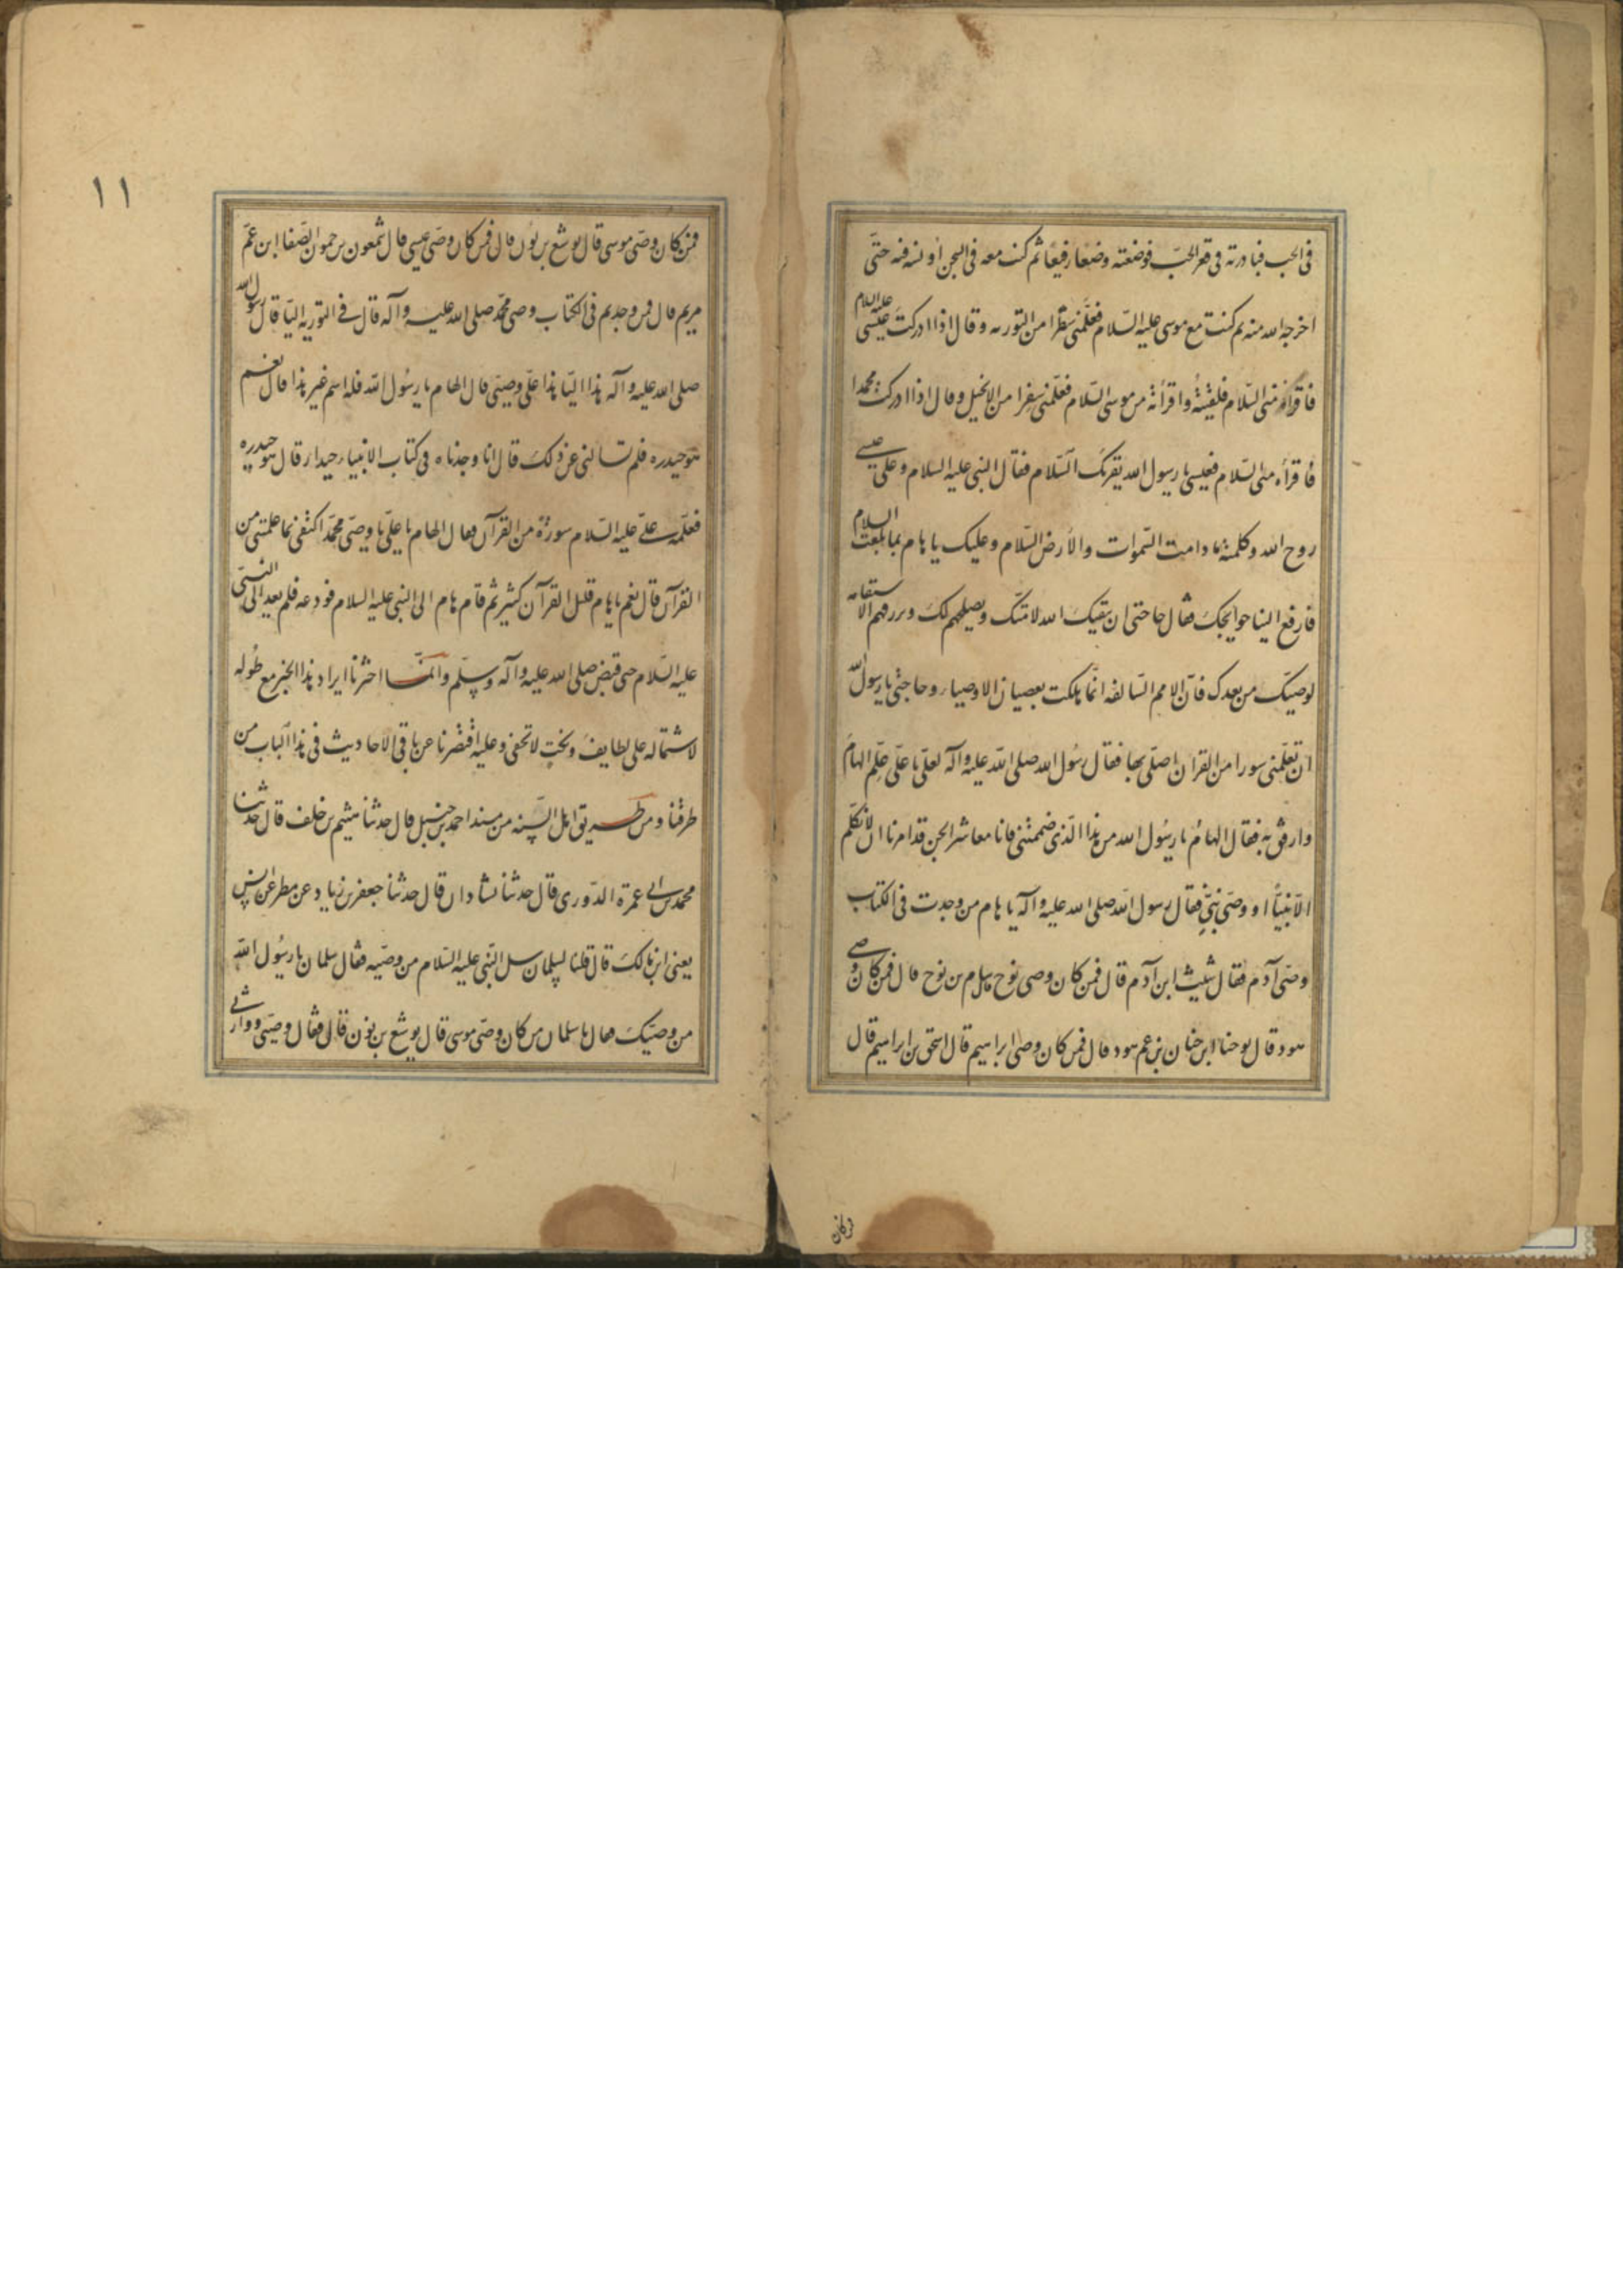 فى الجب فبادرته فى قعر الجبّ فوضعته وضعا رفيعًا ثم كنت معه فى السجن اونسه فيه حتّى
اخرجه الله منه ثم كنت مع موسى عليه السّلام فعلّمنى سفرا من التوريه وقال اذا ادركت عيسى عليه السلام
فاقرأه منى السّلام فلقيتهُ واقرأته من موسى السّلام فعلّمنى سفرا من الانجيل وقال اذا ادركت محمدا
فاقرأه منى السّلام فعيسى يا رسول الله يقرئك السّلام فقال النبى عليه السلام وعلى عيسى
روح الله وكلمته ما دامت السّموات والأرض السّلام وعليك يا هام بما بلّغت السلام
فارفع الينا حوايجك فقال حاجتى ان يبقيك الله لامّتك ويصلحهم لك ويرزقهم الاستقامه
لوصيّك من بعدك فانّ الامم السّالفه انّما هلكت بعصيان الاوصياء وحاجتى يا رسول الله
ان تعلّمنى سورا من القرآن اصلّى بها فقال رسُول الله صلى الله عليه وآله لعلى يا علىّ علّم الهامَ
وارفق به فقال الهامُ يا رسُول الله من هذا الّذى ضممتنى فانا معاشر الجن قد امرنا ان لا نكلّم
الّا نبيّا او وصىّ نبىّ فقال رسول الله صلى الله عليه وآله يا هام من وجدت فى الكتاب
وصّى آدم فقال شيث ابن آدم قال فمن كان وصى نوح قال سام بن نوح قال فمن كان وصى
هود قال يوحنا ابن خنان بن عم هود قال فمن كان وصى ابراهيم قال اسحق بن ابراهيم قال
فمن كان
١١
فمن كان وصّى موسى قال يوشع بن نون قال فمن كان وصّى عيسى قال شمعون بن حمون الصّفا ابن عمّ
مريم قال فمن وجدتم فى الكتاب وصى محمّد صلى الله عليه وآله قال فى التوريه اليّا قال رسول الله
صلى الله عليه وآله هذا اليّا هذا علىّ وصيّى قال الهام يا رسُول الله فله اسم غير هذا قال نعم
هو حيدره فلم تسالنى عن ذلك قال انا وجدناه فى كتاب الانبياء حيدار قال هو حيدره
فعلّمه علىّ عليه السّلام سورة من القرآن فقال الهام يا علىّ يا وصىّ محمّد اكتفى بما علمتنى من
القرآن قال نعم يا هام قليل القرآن كثير ثم قام هام الى النبى عليه السلام فودعه فلم يعد الى النبىّ
عليه السّلام حتى قبض صلى الله عليه وآله وسلّم وانّما اخترنا ايراد هذا الخبر مع طُوله
لاشتماله على لطايف ونكت لا تخفى وعليه اقتصرنا عن باقى الاحاديث فى هذا الباب من
طرقنا ومن طريق اهل السّنه من مسند احمد بن حنبل قال حدثنا هيثم بن خلف قال حدثنا
محمد بن ابى عمرة الدّورى قال حدثنا شاذان قال حدثنا جعفر بن زياد عن مطر عن انس
يعنى ابن مالك قال قلنا لسلمان سل النّبى عليه السّلام من وصّيه فقال سلمان يا رسُول الله
من وصيّك فقال يا سلمان من كان وصّى موسى قال يوشع بن نون قال فقال وصيّى ووارثى